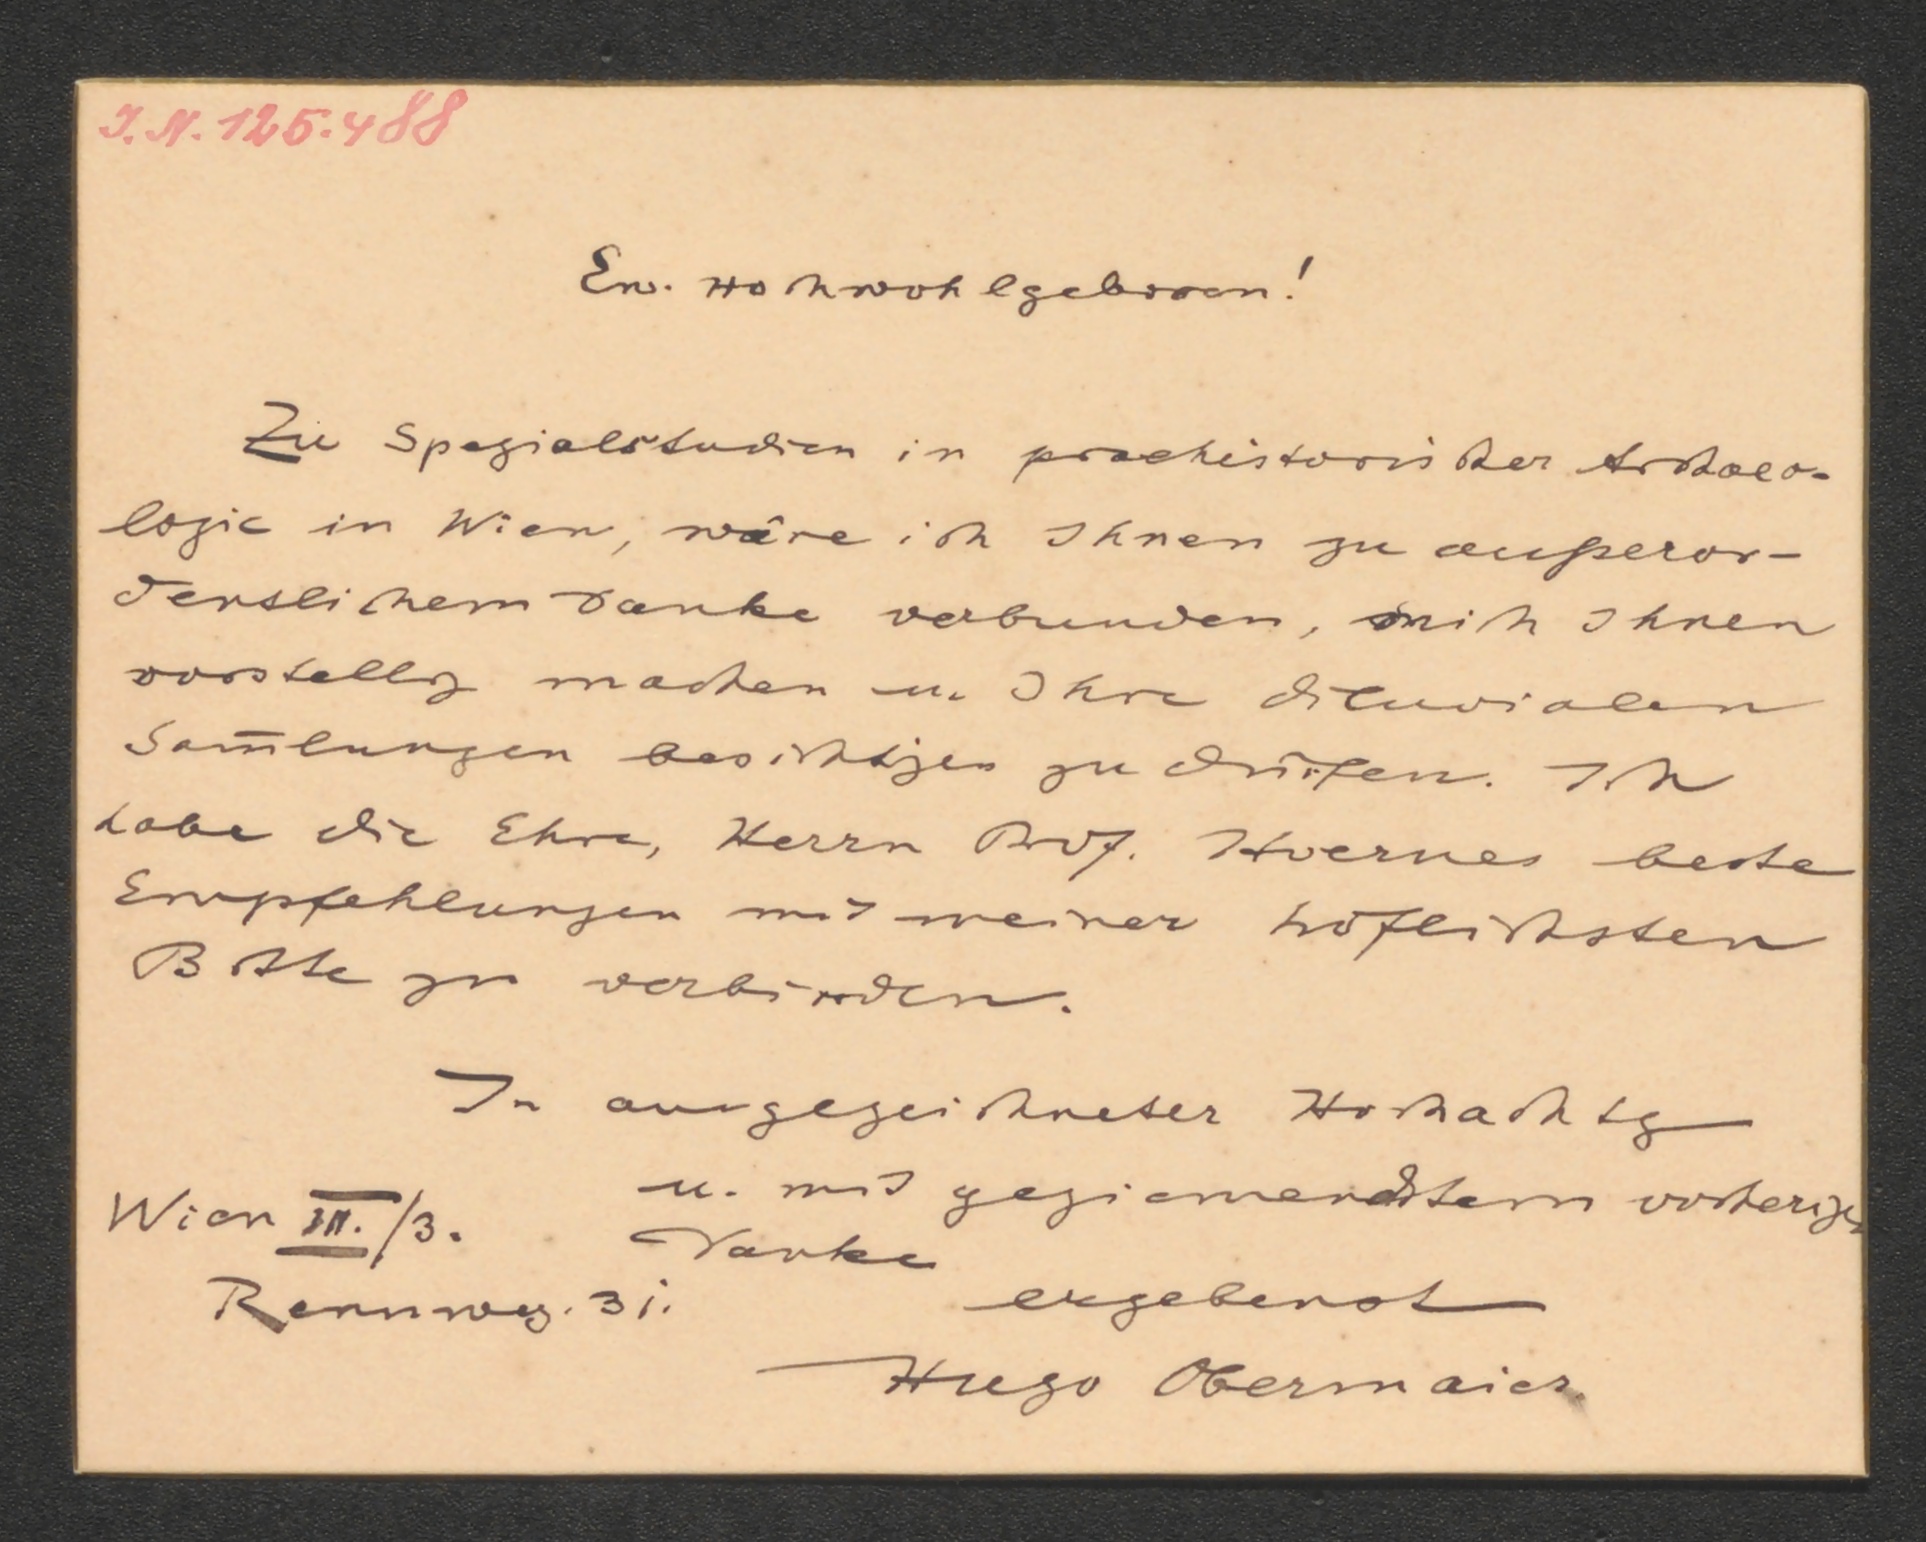 I.N. 125.488
Ew. Hochwohlgeboren!
Zu Spezialstudien in praehistorischer Archaeo-
logie in Wien, wäre ich Ihnen zu außeror-
dentlichem Danke verbunden, mich Ihnen
vorstellig machen u. Ihre diluvialen
Sam̄lungen besichtigen zu dürfen. Ich
habe die Ehre, Herrn Prof. Hoernes beste
Empfehlungen mit meiner höflichsten
Bitte zu verbinden.
In ausgezeichneter Hochachtg
u. mit geziemendstem vorherigen
Danke
Wien III./3.
Rennweg. 31.
ergebenst
Hugo Obermaier.